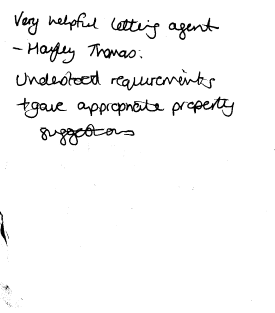 Very helpful letting agent
- Hayley Thomas.
Understood requirements
+ gave appropriate property
suggestions